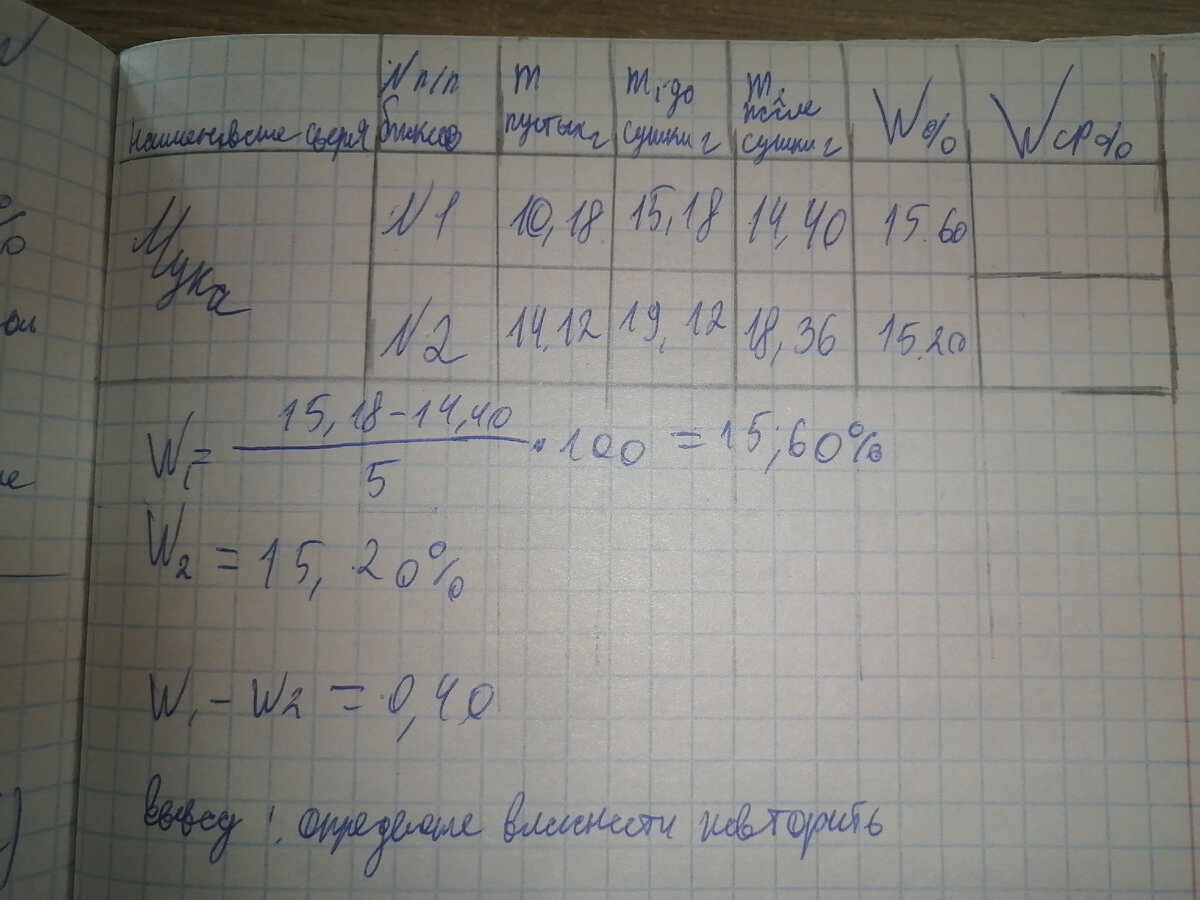 Наименование сырья N п/п бюксов m пустых г m₁ до сушки г m₂ после сушки г W% Wср%
Мука
N1 10,18 15,18 14,40 15.60
N2 14,12 19,12 18,36 15.20
W₁ = 15,18-14,40 / 5 · 100 = 15,60%
W₂ = 15,20%
W₁ - W2 = 0,40
Вывод: определение влажности повторить